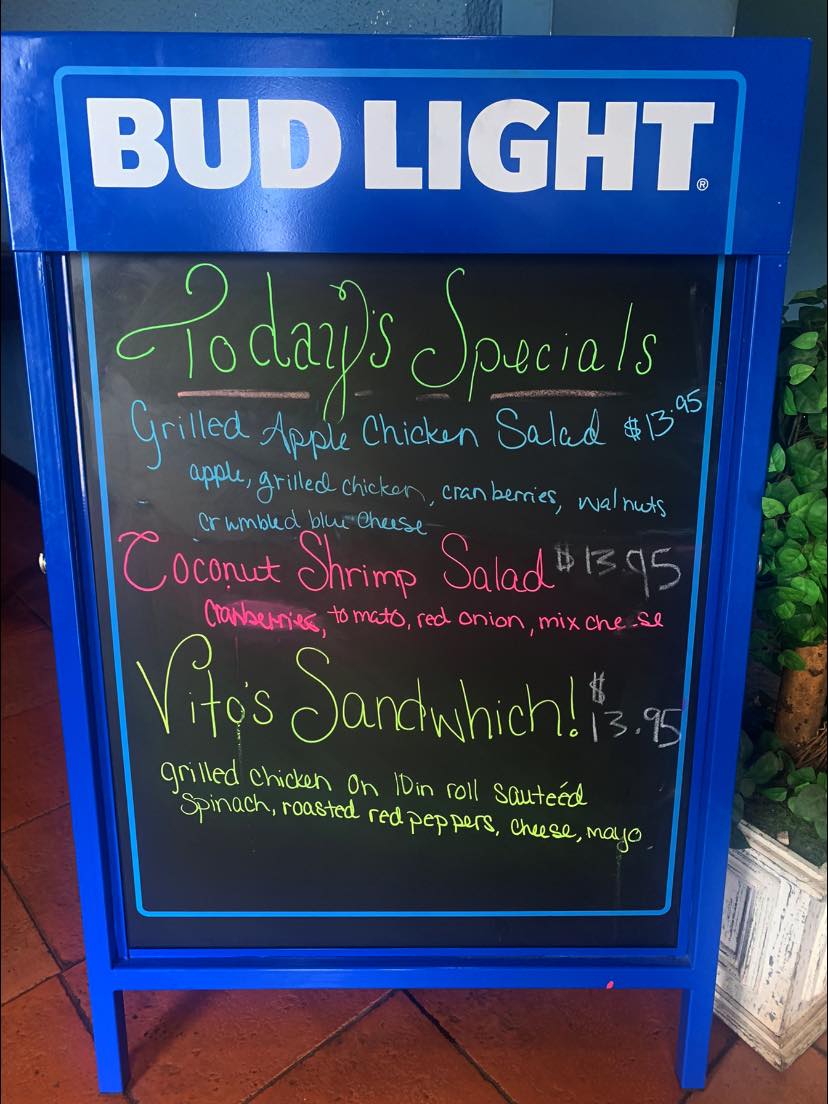 BUD LIGHT®
Today's Specials
Grilled Apple Chicken Salad $13.95
apple, grilled chicken, cranberries, walnuts
crumbled blue cheese
Coconut Shrimp Salad $13.95
cranberries, tomato, red onion, mix cheese
Vito's Sandwhich! $13.95
grilled chicken on 10in roll sauteéd
Spinach, roasted red peppers, cheese, mayo